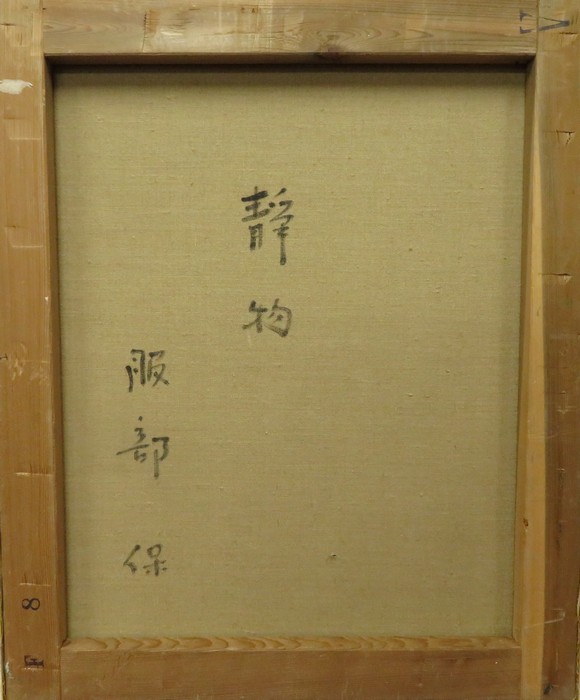 靜物
服部 保
8
F